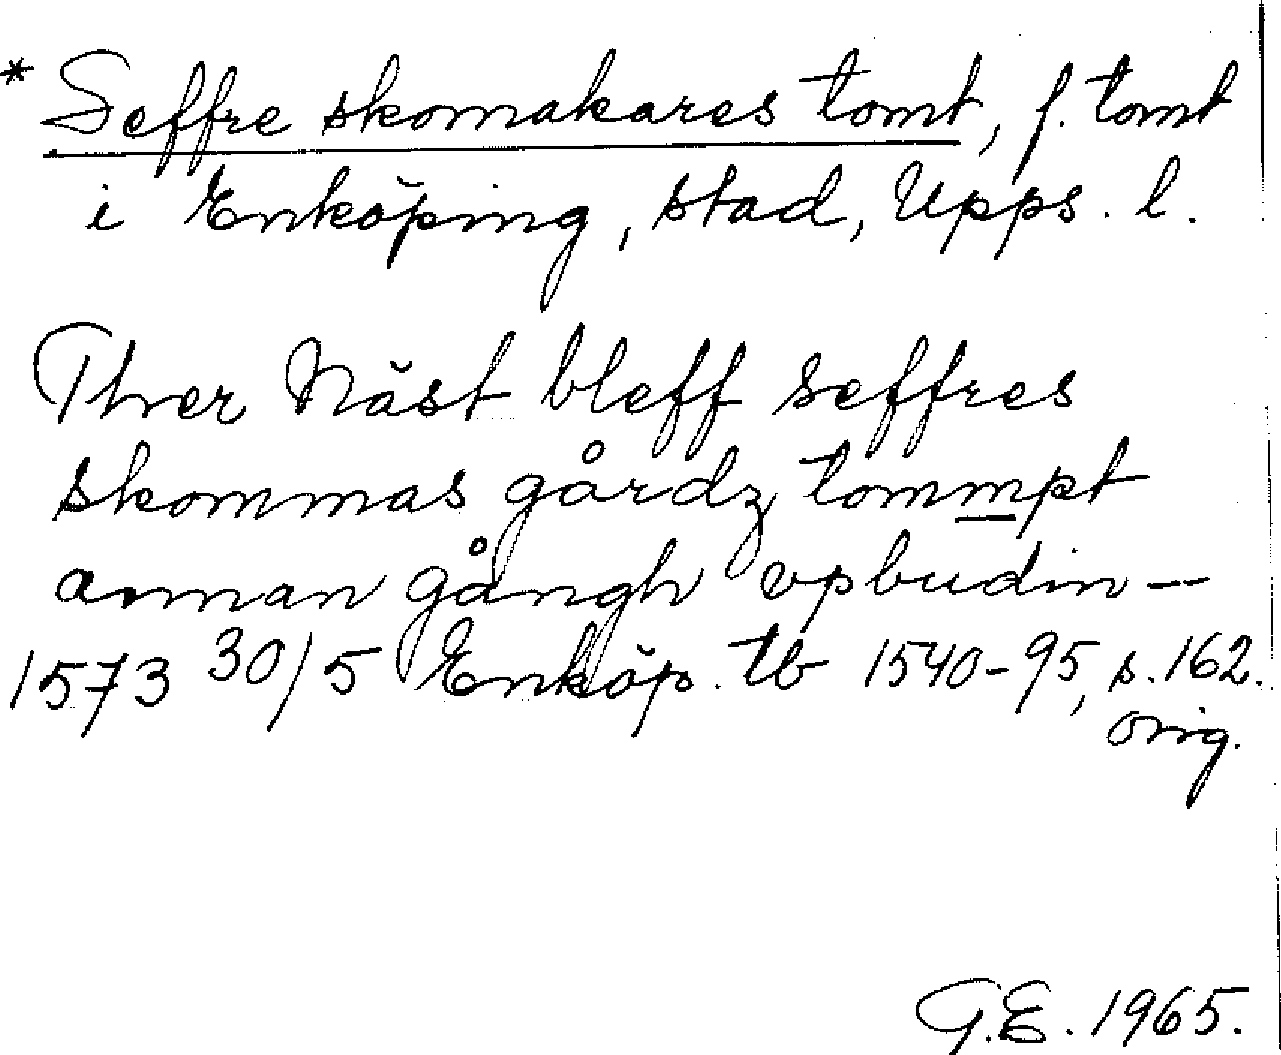 * Seffre skomakares tomt, f. tomt
i Enköping, stad, Upps. l.
Ther Näst bleff seffres
skommas gårdz tommpt
annan gångh vpbudin —
1573 30/5 Enköp. tb 1540-95, s. 162.
orig.
G.E. 1965.